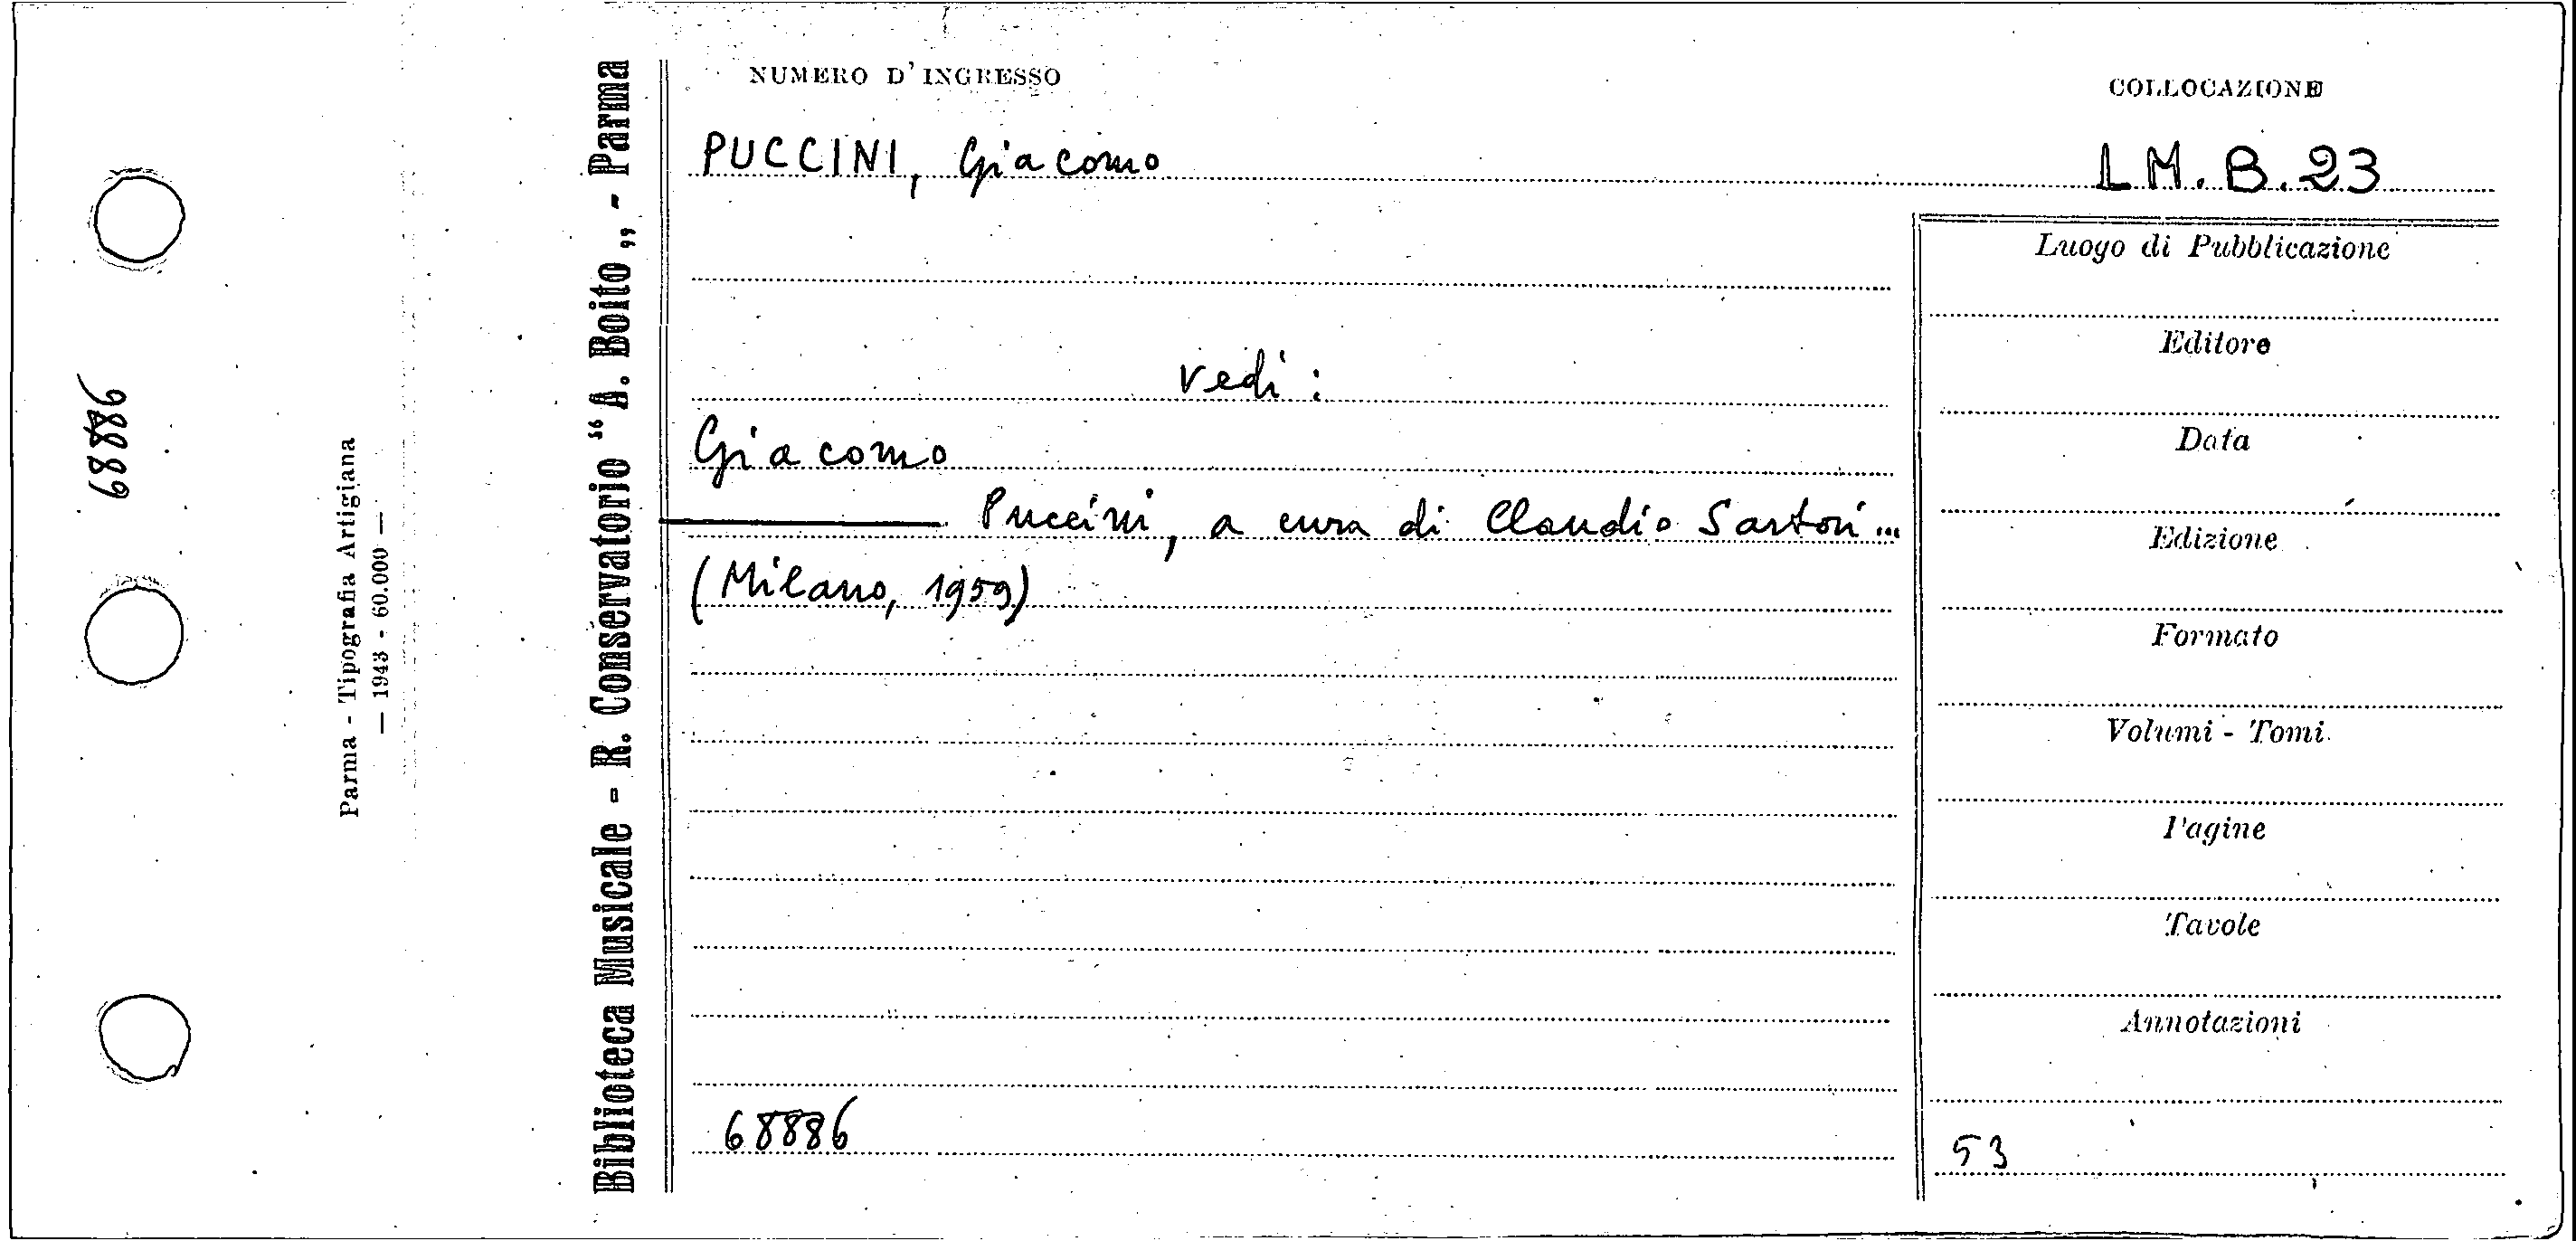 68886
Parma - Tipografia Artigiana
— 1943 - 60.000 —
Biblioteca Musicale - R. Conservatorio "A. Boito„ - Parma
NUMERO D'INGRESSO
COLLOCAZIONE
PUCCINI, Giacomo
LM. B. 23
vedi :
Giacomo
Puccini, a cura di Claudio Sartori...
(Milano, 1959)
68886
Luogo di Pubblicazione
Editore
Data
Edizione
Formato
Volumi - Tomi
Pagine
Tavole
Annotazioni
53